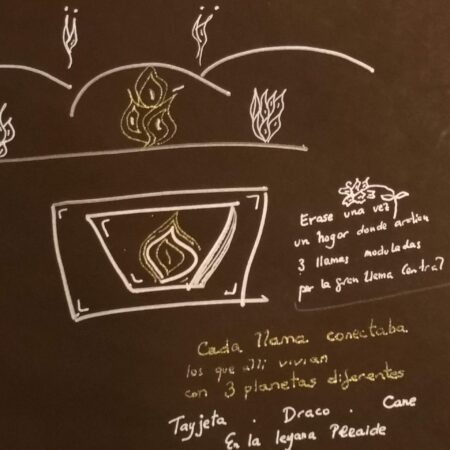 Erase una vez
un hogar donde ardian
3 llamas moduladas
por la gran llema central
Cada llama conectaba
los que alli vivian
con 3 planetas diferentes
Tayjeta . Draco . Cane
En la leyana Pleaide